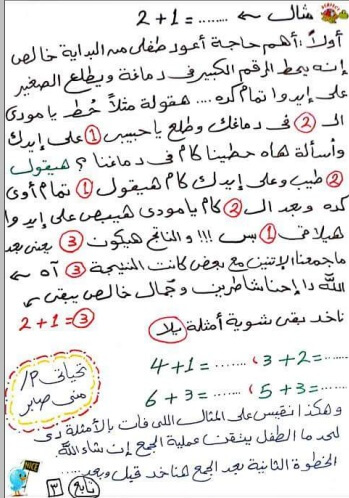 مثال ← ....... = 1 + 2
PERFECT
أولاً: أهم حاجة أعود طفلى من البداية خالص
إنه يحط الرقم الكبير فى دماغة ويطلع الصغير
على إيدوا تمام كده .... هقوله مثلاً حُط يا مودى
الـ 2 فى دماغك وطلع يا حبيبى 1 على إيدك
وأسألة هاه حطينا كام فى دماغنا ؟ هيقول
2 طيب وعلى إيدك كام هيقول 1 تمام أوى
كده وبعد الـ 2 كام يا مودى هيبص على إيدوا
هيلاقى 1 بس !!! والناتج هيكون 3 يعنى بعد
ماجمعنا الإتنين مع بعض كانت النتيجة 3 آه ←
الله دا إحنا شاطرين وجمال خالص يبقى
2 + 1 = 3
ناخد بقى شوية أمثلة يلا
4 + 1 = ....... ، 3 + 2 = .......
6 + 3 = ....... ، 5 + 3 = .......
تحياتى P/
منى صابر
وهكذا نقيس على المثال اللى فات بالأمثلة دى
لحد ما الطفل يتقن عملية الجمع إن شاء الله
الخطوة الثانية بعد الجمع هناخد قبل وبعد....
NICE
تابع 3